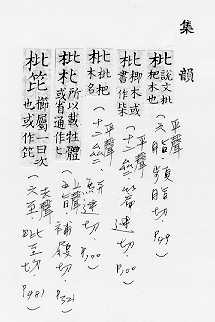 集韻
枇說文枇
杷木也
(平聲
六脂 頻脂切. P.49)
枇楖木或
書作柴
(平聲
十二㿝 篇迷切. P.100)
枇枇杷
木名
(平聲
十二㿝 駢迷切. P.100)
枇朼所以載牲體
或省通作匕
(上聲. 補履切. P.321)
枇笓櫛屬一曰次
也或作笓
(去聲
六至. 毗至切. P.481)